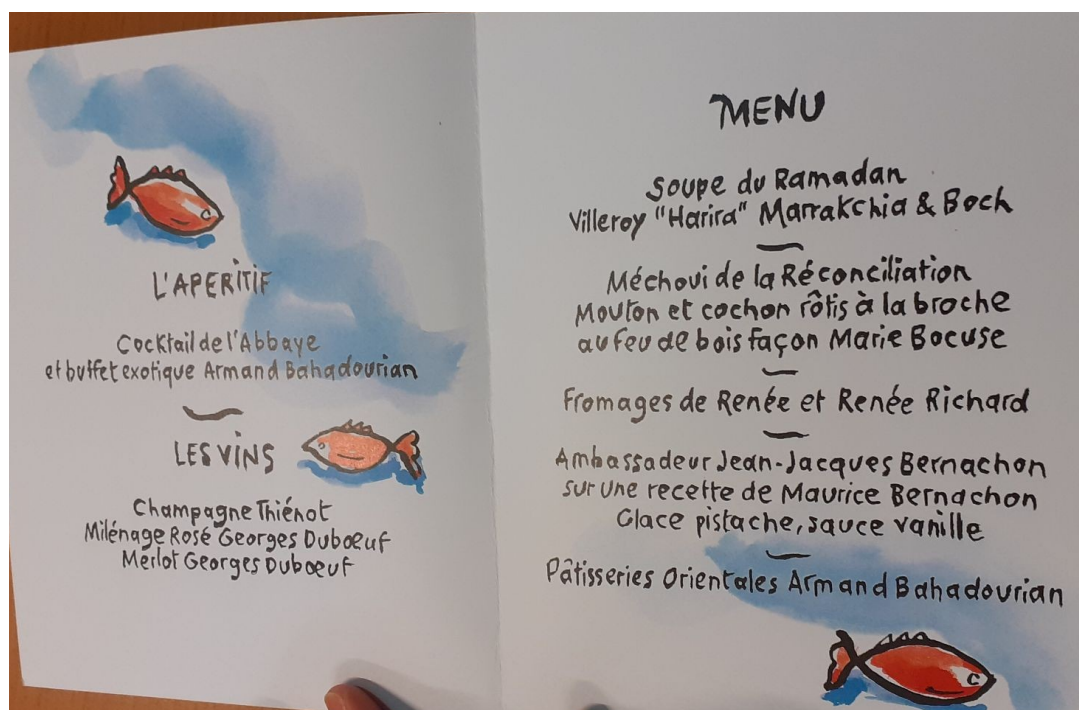 L'APERITIF
Cocktail de l'Abbaye
et buffet exotique Armand Bahadourian
LES VINS
Champagne Thiénot
Milénage Rosé Georges Dubœuf
Merlot Georges Dubœuf
MENU
Soupe du Ramadan
Villeroy "Harira" Marrakchia & Boch
Méchoui de la Réconciliation
Mouton et cochon rôtis à la broche
au feu de bois façon Marie Bocuse
Fromages de Renée et Renée Richard
Ambassadeur Jean-Jacques Bernachon
sur une recette de Maurice Bernachon
Glace pistache, sauce vanille
Pâtisseries Orientales Armand Bahadourian